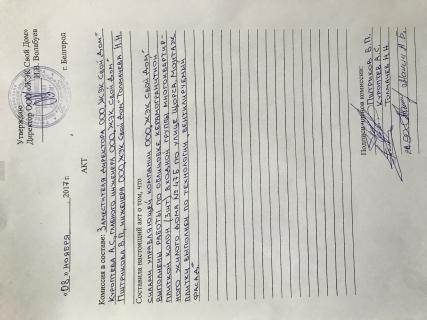 Утверждаю
Директор ООО «ЖЭК Свой Дом»
И.В. Волабуев
«08» ноября 2017г.
г. Белгород
АКТ
Комиссия в составе: Заместителя директора ООО „ЖЭК Свой Дом"
Куроптева А.С, главного инженера ООО „ЖЭК Свой Дом"
Пштракова В.П, инженера ООО „ЖЭК Свой Дом" Толмачева Н.Н.
Составила настоящий акт о том, что
силами управляющей компании ООО „ЖЭК Свой Дом"
выполнены работы по облицовке керамогранитной
плиткой колон (3шт) входной группы многоквартир-
ного жилого дома № 47Б по улице Щорса. Монтаж
плитки выполнен по технологии „Вентилируемый
фасад"
Подписи членов комиссии:
Пштраков В.П.
Куроптев А.С.
Толмачев Н.Н